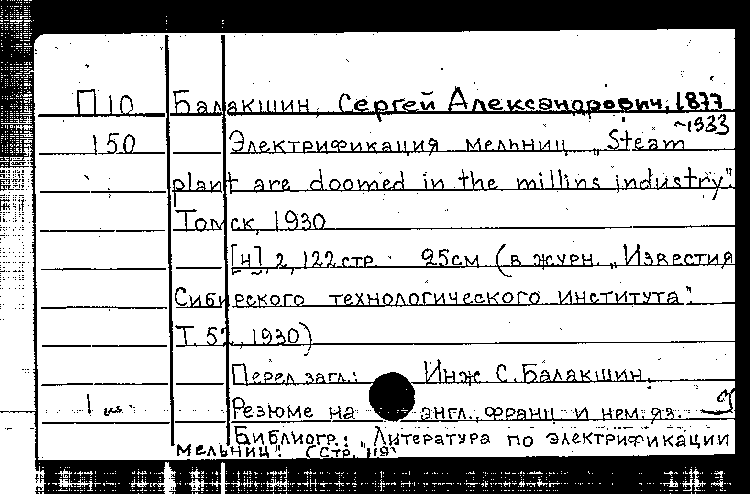 П10 Балакшин, Сергей Александрович, 1877
~1933
150 Электрификация мельниц „Steam
plant are doomed in the millins industry".
Томск, 1930
[4], 2, 122 стр. 25см (в журн. „Известия
Сибирского технологического института".
Т. 51, 1930)
Перед загл.: Инж С. Балакшин.
1 Резюме на англ., франц и нем. яз.
Библиогр.: „Литература по электрификации
мельниц" (стр. 119)